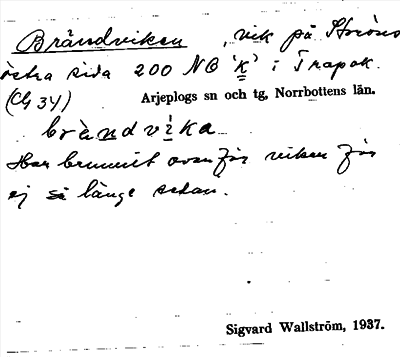 Brändviken, vik på Storöns
östra sida 200 NO 'K' i Trapok.
(Cg 34) Arjeplogs sn och tg, Norrbottens län.
brändvika
Har brunnit ovanför viken för
ej så länge sedan.
Sigvard Wallström, 1937.